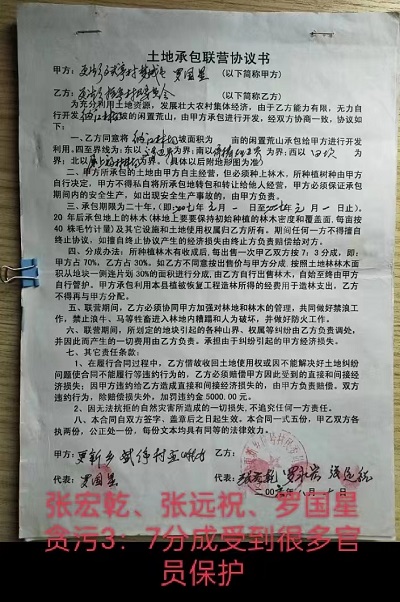 土地承包联营协议书
甲方: 罗国星 (以下简称甲方)
乙方: (以下简称乙方)
为充分利用土地资源,发展壮大农村集体经济,由于乙方能力有限,无力自
行开发 的闲置荒山,由甲方承包进行开发,经双方协商一致,协议如
下:
一、乙方同意将 坡面积为 亩的闲置荒山承包给甲方进行开发利
用,四至界线为:东以 为界;南以 为界;西以 为
界;北以 为界。(具体以后附地形图为准)
二、甲方所承包的土地由甲方自主经营,但必须种上林木,所种植树种由甲方
自行决定,甲方不得私自将所承包地转包和转让给他人经营,甲方必须保证承包期
间内的安全生产,如出现安全生产事故的,由甲方负责。
三、承包期限为二十年,(即 年元月一日至 年元月一日止),
20年后承包地上的林木(林地上要要保持初始种植的林木密度和覆盖面,每亩按
40株毛竹计量)及其它设施和土地使用权属归乙方所有。期间任何一方不得擅自
终止协议,如擅自终止协议产生的经济损失由终止方负责赔偿给对方。
四、分成办法:所种植林木有收成后,每出售一次甲乙双方按7:3分,即:
甲方占70%,乙方占30%。如乙方不同意按出售价与甲方分成,按照土地林林木面
积从地块一侧连片划30%的面积进行分成,由乙方自行出售林木,自始至终由甲方
自行管护。甲方承包利用本县植被恢复工程造林所得的经费用于造林支出,乙方
不得再与甲方分配。
五、联营期间,乙方必须协同甲方加强对林地和林木的管理,共同做好禁浪工
作,禁止浪牛、马等牲畜进入林地内糟蹋和人为破坏,并做好防火工作。
六、联营期间,所划定的地块引起的各种山界、权属等纠纷由乙方负责调处,
并因此而产生的一切费用由乙方负责。承担由于纠纷引起的甲方经济损失。
七、其它责任条款:
1、在履行合同过程中,乙方借故收回土地使用权或因不能解决好土地纠纷
问题使合同不能履行等违约行为的,乙方必须赔偿甲方因此受到的直接和间接经
济损失;因甲方违约给乙方造成直接和间接经济损失的,由甲方负责赔偿。双方
违约行为,除赔偿损失外,加罚违约金5000.00元。
2、因无法抗拒的自然灾害所造成的一切损失,不追究任何一方责任。
八、本合同自双方签字,盖章后之日起生效。本合同一式五份,甲乙双方各
执两份,公正处一份,每份文本均具有同等的法律效力。
甲方: 乙方:
代表:罗国星 代表:张宏乾 张远祝
张宏乾、张远祝、罗国星
贪污3:7分成受到很多官
员保护